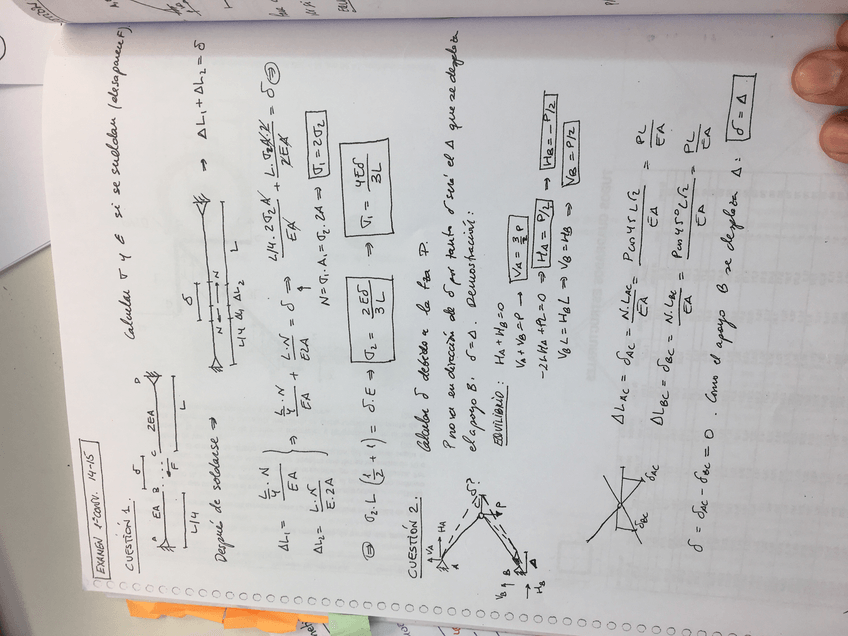 EXAMEN 1ª CONV. 14-15
CUESTIÓN 1.
Calcular σ y ε si se sueldan (desaparece F).
δ
A EA B C 2EA D
F
L/4 L
Después de soldarse ⇒
δ
N N
L/4 Δ1 ΔL2 L
→ ΔL1 + ΔL2 = δ
ΔL1 = L/4 · N / EA
ΔL2 = L·N / E·2A
⇒ L/4 · N / EA + L·N / E2A = δ ⇒ L/4 · 2σ2A / EA + L·σ2A·2 / 2EA = δ ⇒
N = σ1·A1 = σ2·2A ⇒ σ1 = 2σ2
⇒ σ2·L (1/2 + 1) = δ·E ⇒ σ2 = 2Eδ / 3L ⇒ σ1 = 4Eδ / 3L
CUESTIÓN 2.
Calcular δ debido a la fza P.
P no va en dirección de δ por tanto δ será el Δ que se desplaza
el apoyo B. δ = Δ. Demostración:
VA HA
A
C δ?
P
VB B Δ
HB
EQUILIBRIO: HA + HB = 0
VA + VB = P → VA = 3/2 P
-2LHA + PL = 0 ⇒ HA = P/2 → HB = -P/2
VBL = HBL ⇒ VB = HB ⇒ VB = P/2
δBC δAC
ΔLAC = δAC = N·LAC / EA = P cos 45 L√2 / EA = PL / EA
ΔLBC = δBC = N·LBC / EA = P cos 45º L√2 / EA = PL / EA
δ = δAC - δBC = 0. Como el apoyo B se desplaza Δ: δ = Δ